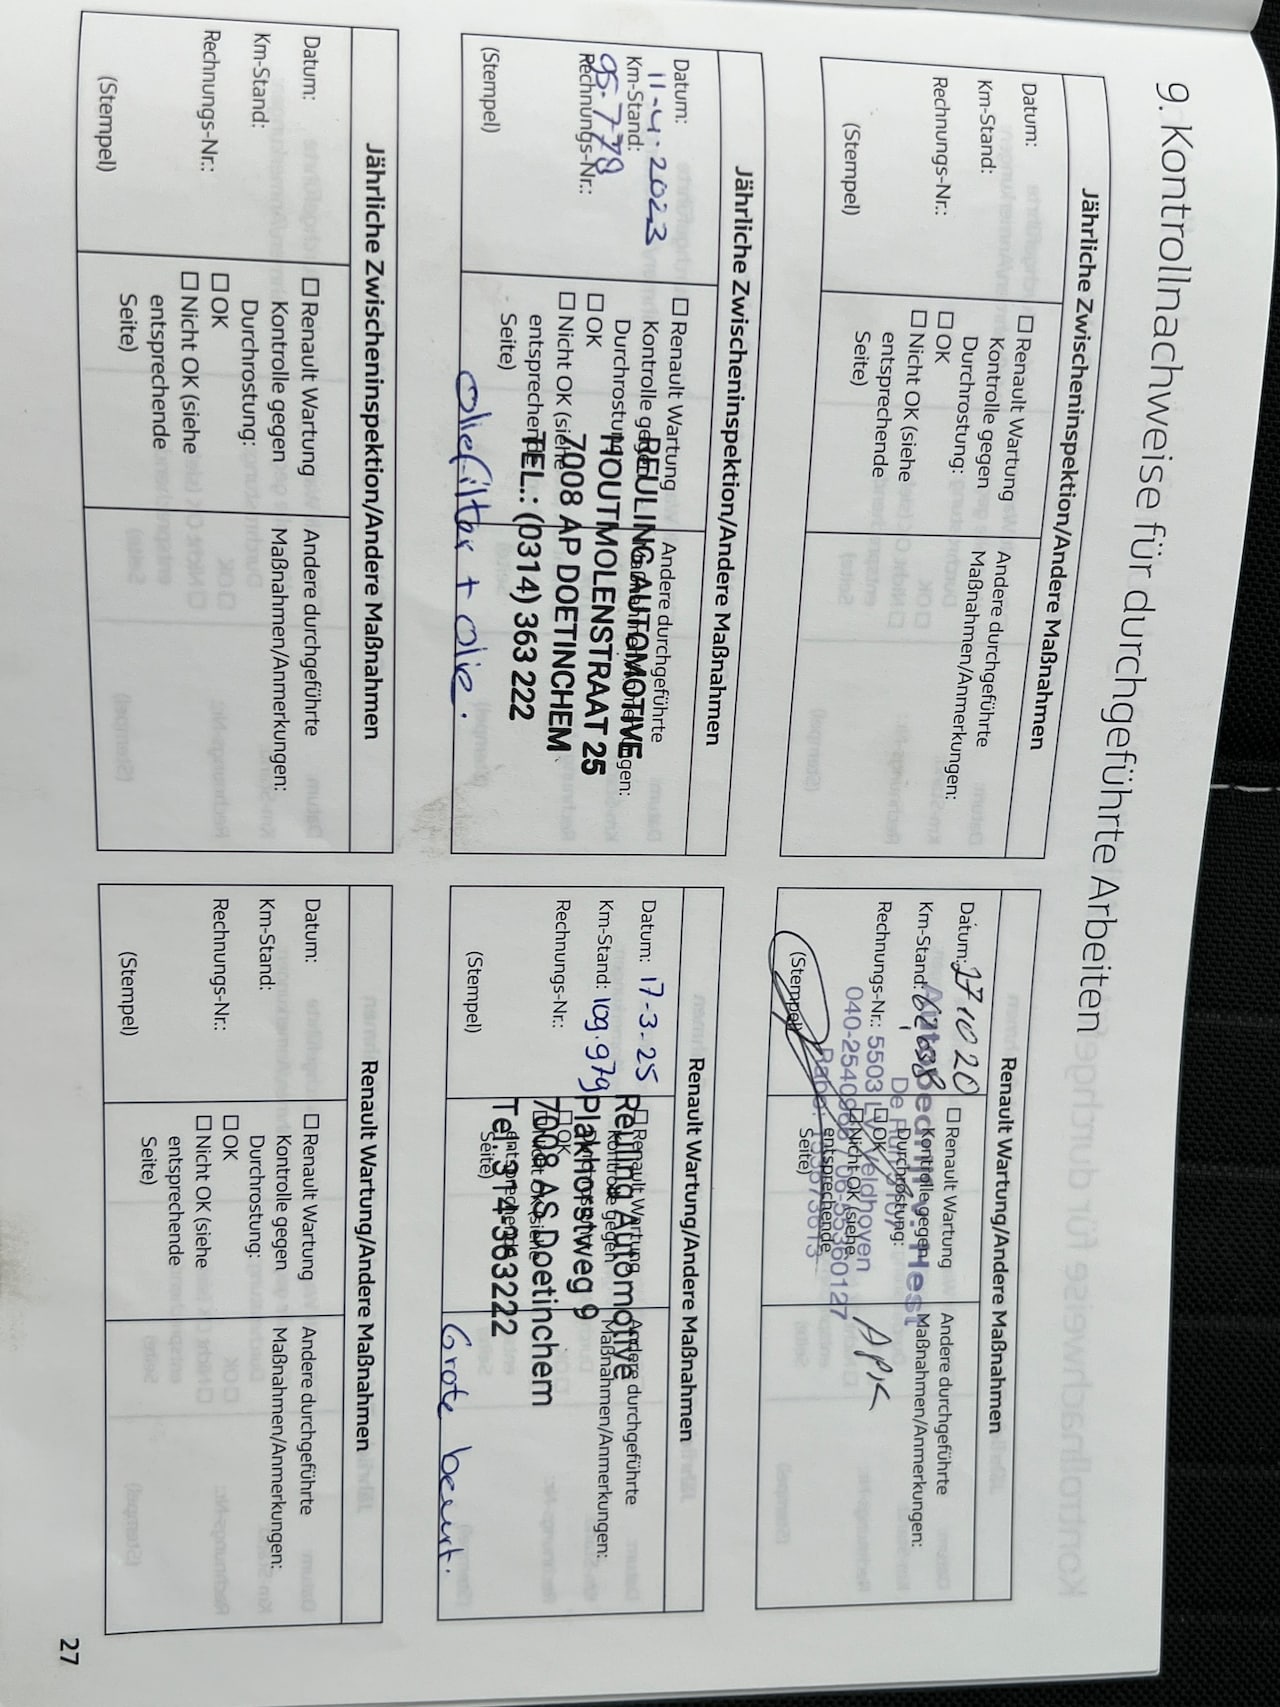 9. Kontrollnachweise für durchgeführte Arbeiten
Jährliche Zwischeninspektion/Andere Maßnahmen
Datum:
Km-Stand:
Rechnungs-Nr.:
(Stempel)
☐ Renault Wartung
Kontrolle gegen
Durchrostung:
☐ OK
☐ Nicht OK (siehe
entsprechende
Seite)
Andere durchgeführte
Maßnahmen/Anmerkungen:
Renault Wartung/Andere Maßnahmen
Datum: 27 10 20
Km-Stand:
Rechnungs-Nr.:
(Stempel)
☐ Renault Wartung
Kontrolle gegen
Durchrostung:
☐ OK
☐ Nicht OK (siehe
entsprechende
Seite)
Andere durchgeführte
Maßnahmen/Anmerkungen:
APK
v. Hest
De Run
5503 L Veldhoven
06-53360127
Jährliche Zwischeninspektion/Andere Maßnahmen
Datum:
11-4-2023
Km-Stand:
95.778
Rechnungs-Nr.:
(Stempel)
☐ Renault Wartung
Kontrolle gegen
Durchrostung:
☐ OK
☐ Nicht OK (siehe
entsprechende
Seite)
Andere durchgeführte
Maßnahmen/Anmerkungen:
REULING AUTOMOTIVE
HOUTMOLENSTRAAT 25
7008 AP DOETINCHEM
TEL.: (0314) 363 222
oliefilter + olie.
Renault Wartung/Andere Maßnahmen
Datum: 17-3-25
Km-Stand: 109.979
Rechnungs-Nr.:
(Stempel)
☐ Renault Wartung
Kontrolle gegen
☐ OK
Seite)
Andere durchgeführte
Maßnahmen/Anmerkungen:
Reuling Automotive
Plakhorstweg 9
7008 AS Doetinchem
Tel. 314-363222
Grote beurt.
Jährliche Zwischeninspektion/Andere Maßnahmen
Datum:
Km-Stand:
Rechnungs-Nr.:
(Stempel)
☐ Renault Wartung
Kontrolle gegen
Durchrostung:
☐ OK
☐ Nicht OK (siehe
entsprechende
Seite)
Andere durchgeführte
Maßnahmen/Anmerkungen:
Renault Wartung/Andere Maßnahmen
Datum:
Km-Stand:
Rechnungs-Nr.:
(Stempel)
☐ Renault Wartung
Kontrolle gegen
Durchrostung:
☐ OK
☐ Nicht OK (siehe
entsprechende
Seite)
Andere durchgeführte
Maßnahmen/Anmerkungen:
27